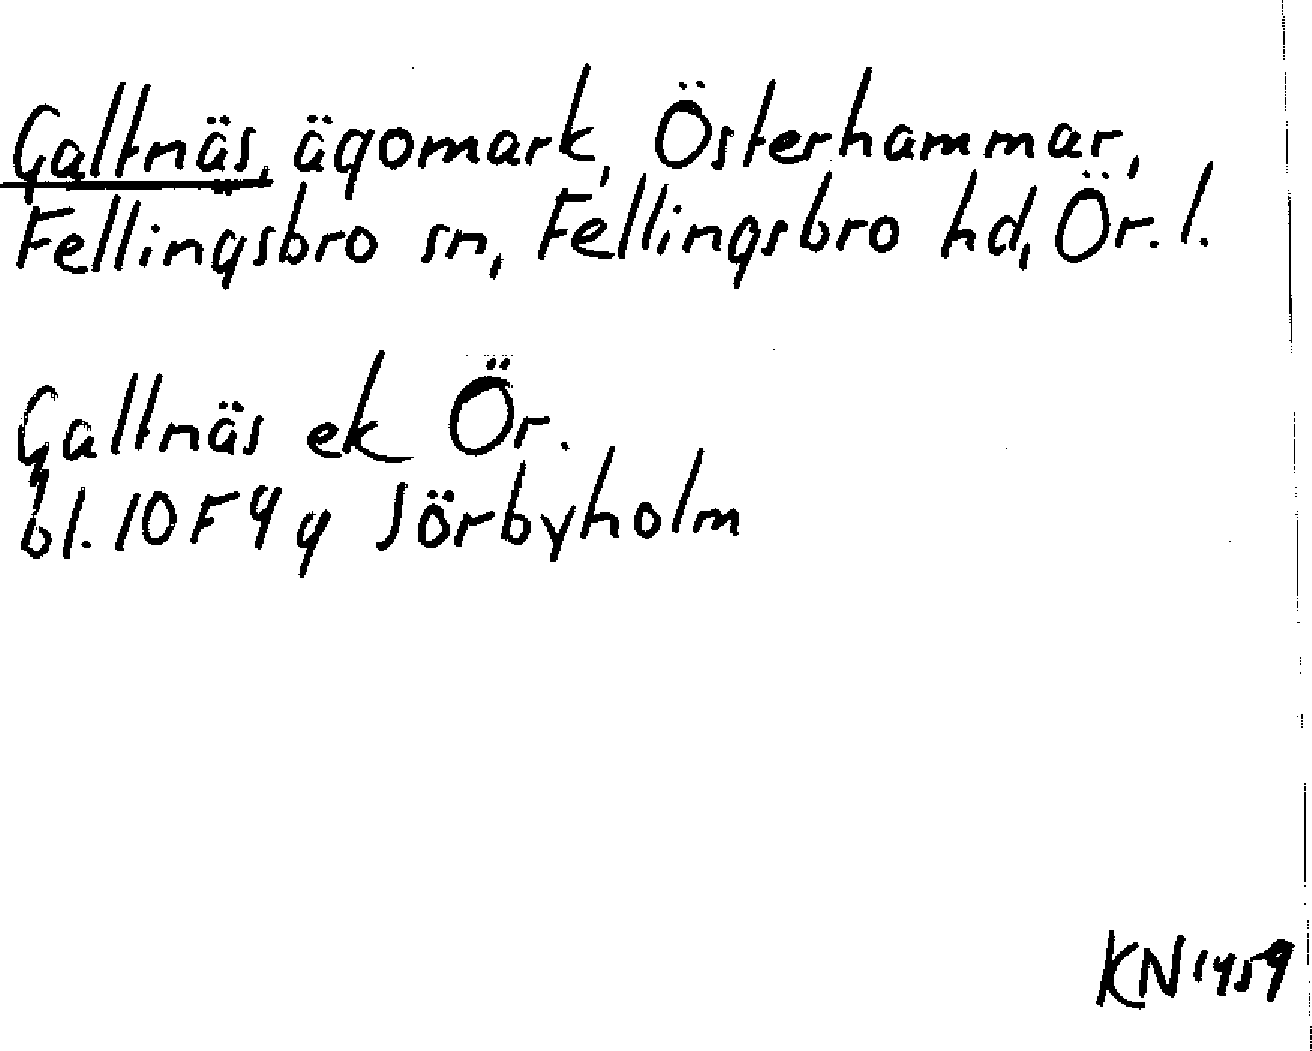 Galtnäs, ägomark, Österhammar,
Fellingsbro sn, Fellingsbro hd, Ör. l.
Galtnäs ek Ör.
bl. 10F9g Sörbyholm
KN 1959